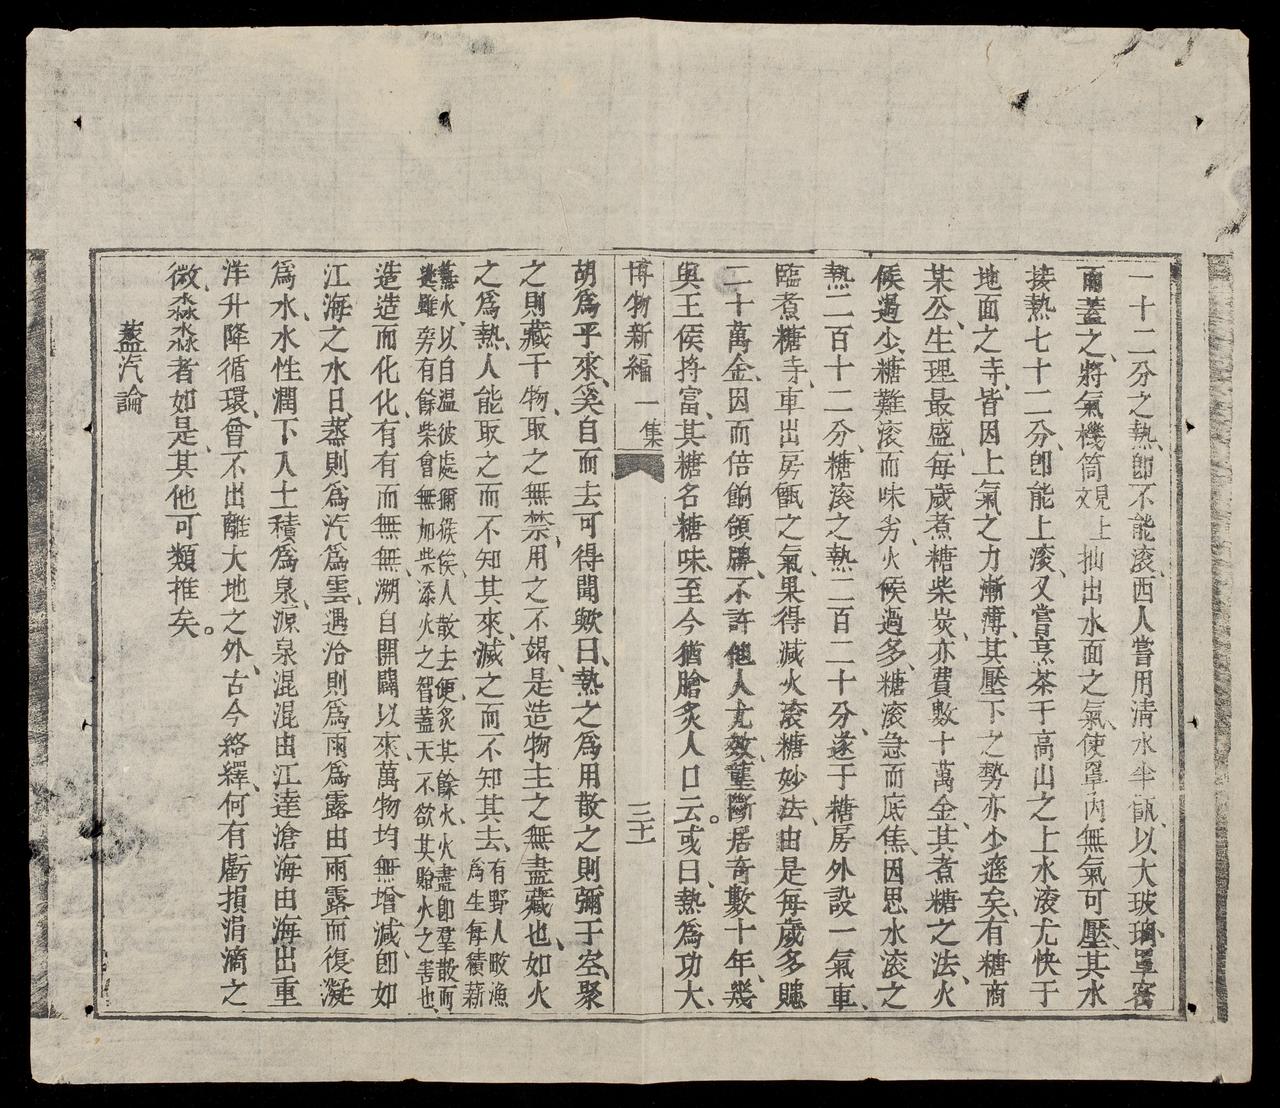 一十二分之熱、卽不能滾、西人嘗用清水半甑、以大玻璃罩密
而蓋之、將氣機筒見上文抽出水面之氣、使罩內無氣可壓、其水
接熱七十二分、卽能上滾、又嘗烹茶于高山之上、水滾尤快于
地面之寺、皆因上氣之力漸薄、其壓下之勢亦少遜矣、有糖商
某公、生理最盛、每歲煮糖柴炭、亦費數十萬金、其煮糖之法、火
候過少、糖難滾而味劣、火候過多、糖滾急而底焦、因思水滾之
熱二百十二分、糖滾之熱二百二十分、遂于糖房外設一氣車、
臨煮糖寺、車出房甑之氣、果得減火滾糖妙法、由是每歲多賺
二十萬金、因而倍餉領牌、不許他人尤效、壟斷居奇數十年、幾
與王侯將富、其糖名糖味、至今猶膾炙人口云。或曰、熱爲功大、
博物新編 一集 三十一
胡爲乎來、奚自而去、可得聞歟、曰、熱之爲用、散之則彌于空、聚
之則藏于物、取之無禁、用之不竭、是造物主之無盡藏也、如火
之爲熱、人能取之而不知其來、滅之而不知其去、有野人畋漁爲生每積薪
蕪火、以自溫彼處獼猴俟人散去便炙其餘火、火盡卽羣散而逃雖旁有餘柴會無加柴添火之智蓋天不欲其贈火之害也、
造造而化化、有有而無無、溯自開闢以來、萬物均無增減、卽如
江海之水、日蒸則爲汽爲雲、遇冷則爲雨爲露、由雨露而復凝
爲水、水性潤下、入土積爲泉源、泉混混由江達滄海、由海出重
洋、升降循環、會不出離大地之外、古今絡繹、何有虧損涓滴之
微、淼淼者如是、其他可類推矣。
蒸汽論